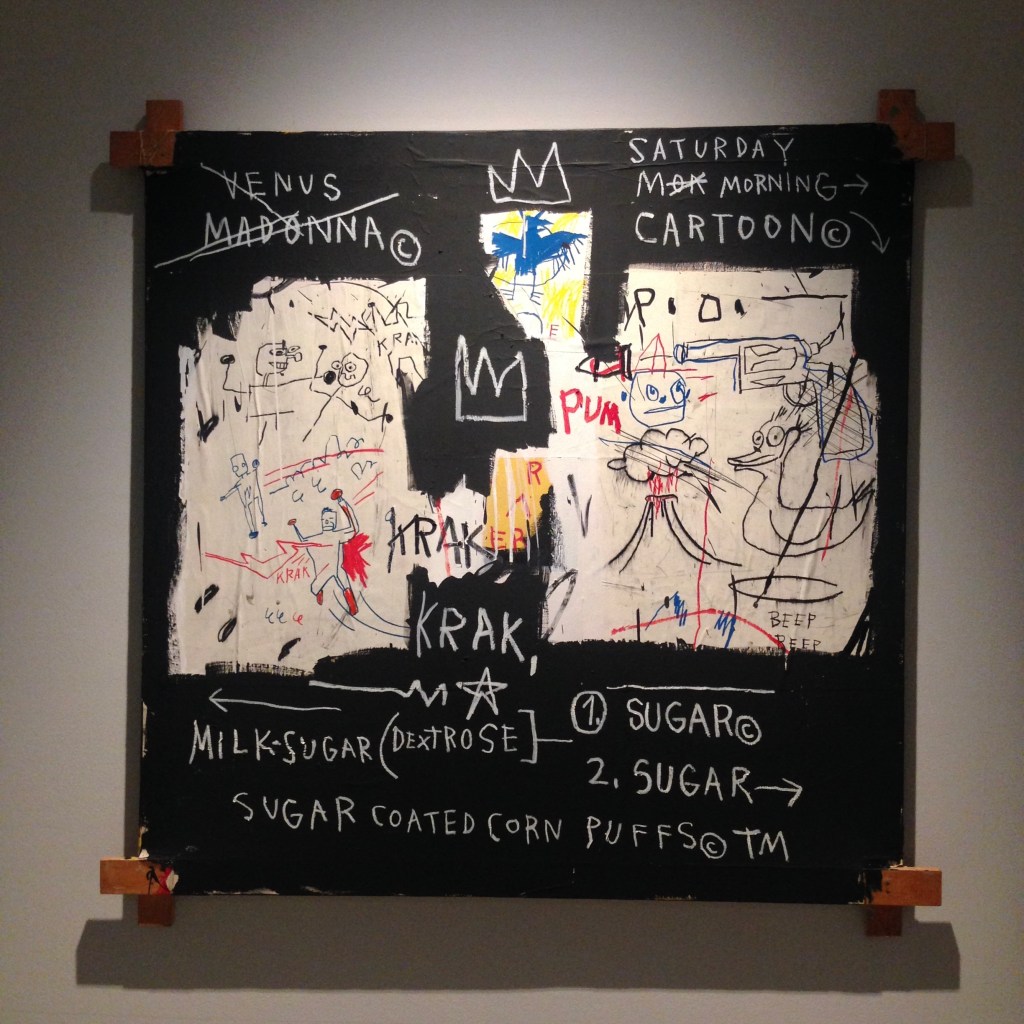 VENUS
MADONNA ©
SATURDAY
MOR MORNING →
CARTOON ©
KRAK
P.O.
E
PUM
R
KRAK
EB
KRAK
BEEP
BEEP
KRAK,
MILK-SUGAR (DEXTROSE]
1. SUGAR ©
2. SUGAR →
SUGAR COATED CORN PUFFS © TM